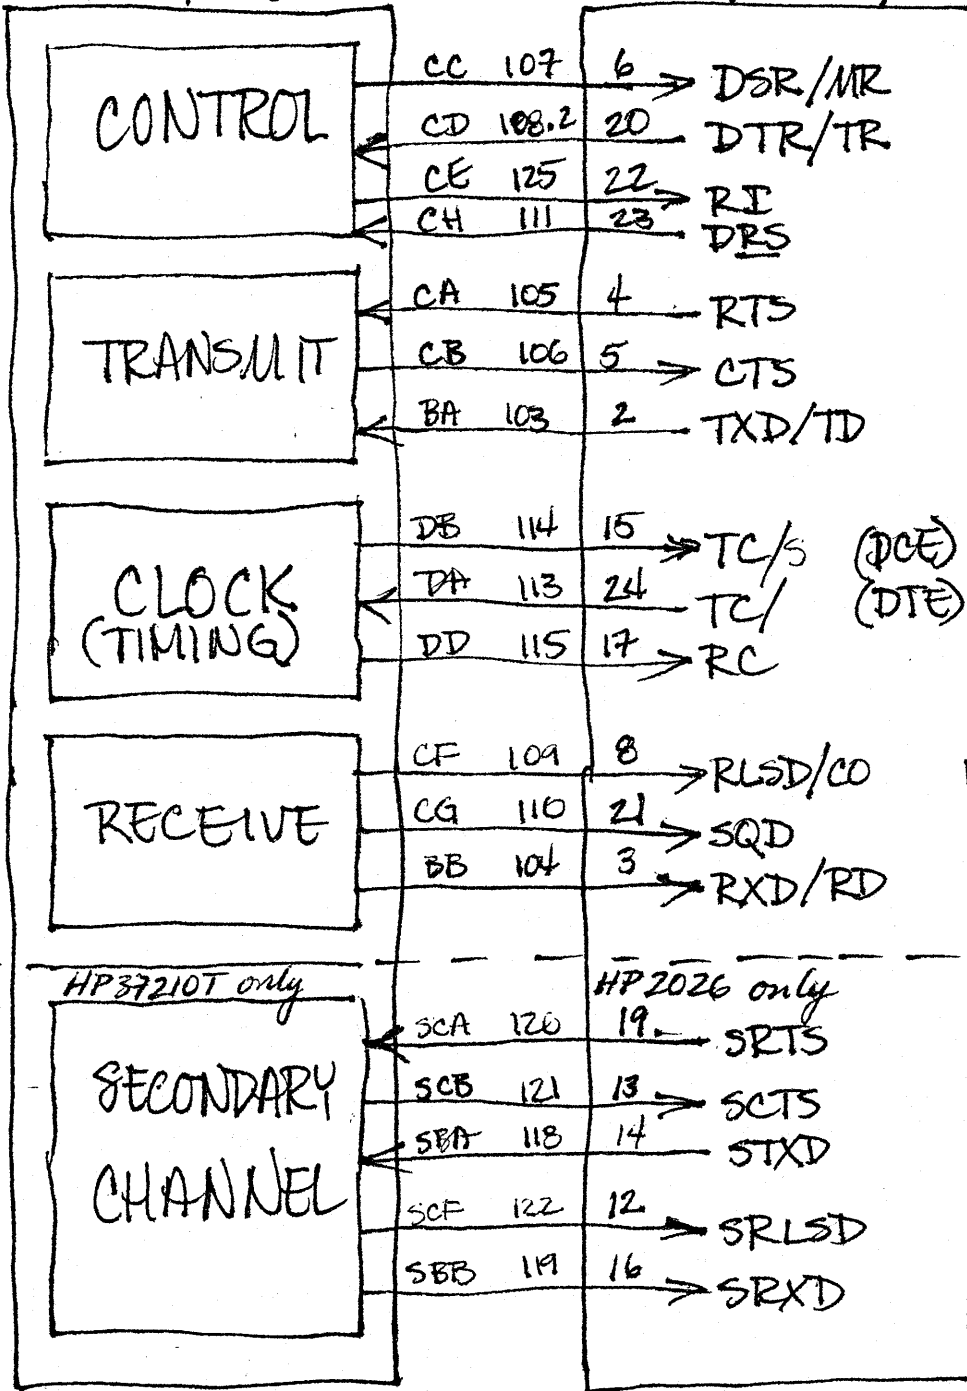 CONTROL
CC 107 6 DSR/MR
CD 108.2 20 DTR/TR
CE 125 22 RI
CH 111 23 DRS
TRANSMIT
CA 105 4 RTS
CB 106 5 CTS
BA 103 2 TXD/TD
CLOCK
(TIMING)
DB 114 15 TC/S (DCE)
DA 113 24 TC/ (DTE)
DD 115 17 RC
RECEIVE
CF 109 8 RLSD/CO
CG 110 21 SQD
BB 104 3 RXD/RD
HP37210T only HP2026 only
SECONDARY
CHANNEL
SCA 120 19 SRTS
SCB 121 13 SCTS
SBA 118 14 STXD
SCF 122 12 SRLSD
SBB 119 16 SRXD